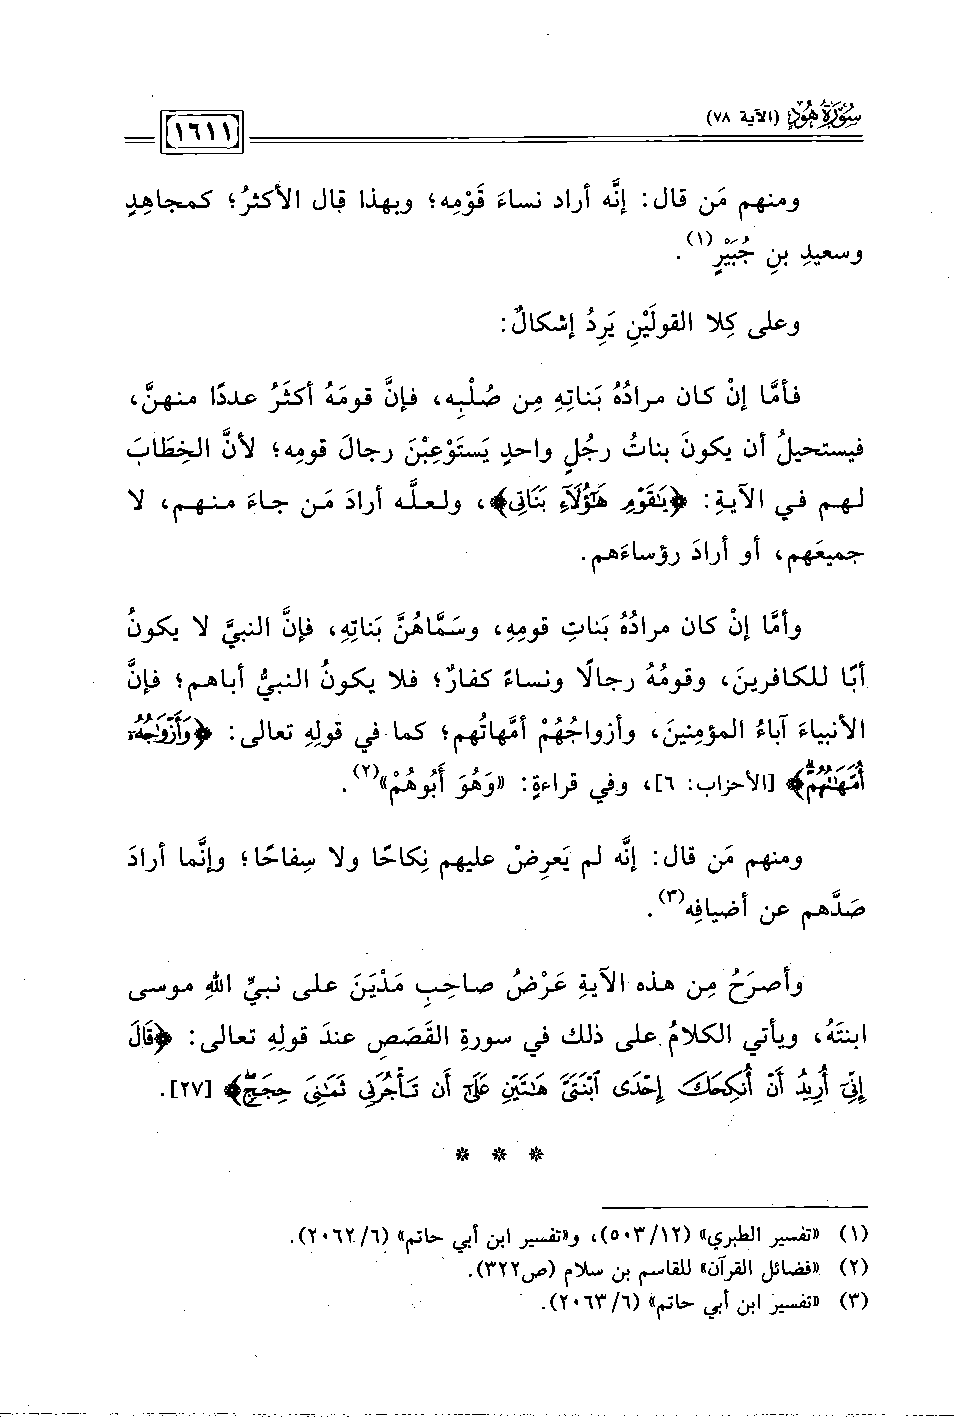 سُورَةُ هُودٍ (الآية ٧٨)
١٦١١
ومنهم مَن قال: إنَّه أراد نساءَ قَوْمِه؛ وبهذا قال الأكثرُ؛ كمجاهِدٍ
وسعيدِ بنِ جُبَيْرٍ(١).
وعلى كِلا القولَيْنِ يَرِدُ إشكالٌ:
فأمَّا إنْ كان مرادُهُ بَناتِهِ مِن صُلْبِه، فإنَّ قومَهُ أكثَرُ عددًا منهنَّ،
فيستحيلُ أن يكونَ بناتُ رجُلٍ واحدٍ يَستَوْعِبْنَ رجالَ قومِه؛ لأنَّ الخِطَابَ
لهم في الآيةِ: ﴿يَٰقَوْمِ هَٰٓؤُلَآءِ بَنَاتِى﴾، ولعلَّه أرادَ مَن جاءَ منهم، لا
جميعَهم، أو أرادَ رؤساءَهم.
وأمَّا إنْ كان مرادُهُ بَناتِ قومِهِ، وسَمَّاهُنَّ بَناتِهِ، فإنَّ النبيَّ لا يكونُ
أبًا للكافرينَ، وقومُهُ رجالًا ونساءً كفارٌ؛ فلا يكونُ النبيُّ أباهم؛ فإنَّ
الأنبياءَ آباءُ المؤمِنينَ، وأزواجُهُمْ أمَّهاتُهم؛ كما في قولِهِ تعالى: ﴿وَأَزْوَٰجُهُۥٓ
أُمَّهَٰتُهُمْۗ﴾ [الأحزاب: ٦]، وفي قراءةٍ: «وَهُوَ أَبُوهُمْ»(٢).
ومنهم مَن قال: إنَّه لم يَعرِضْ عليهم نِكاحًا ولا سِفاحًا؛ وإنَّما أرادَ
صَدَّهم عن أضيافِه(٣).
وأصرَحُ مِن هذه الآيةِ عَرْضُ صاحِبِ مَدْيَنَ على نبيِّ اللهِ موسى
ابنتَهُ، ويأتي الكلامُ على ذلك في سورةِ القَصَصِ عندَ قولِهِ تعالى: ﴿قَالَ
إِنِّىٓ أُرِيدُ أَنْ أُنكِحَكَ إِحْدَى ٱبْنَتَىَّ هَٰتَيْنِ عَلَىٰٓ أَن تَأْجُرَنِى ثَمَٰنِىَ حِجَجٍۖ﴾ [٢٧].
* * *
(١) «تفسير الطبري» (١٢/ ٥٠٣)، و«تفسير ابن أبي حاتم» (٦/ ٢٠٦٢).
(٢) «فضائل القرآن» للقاسم بن سلام (ص٣٢٢).
(٣) «تفسير ابن أبي حاتم» (٦/ ٢٠٦٣).